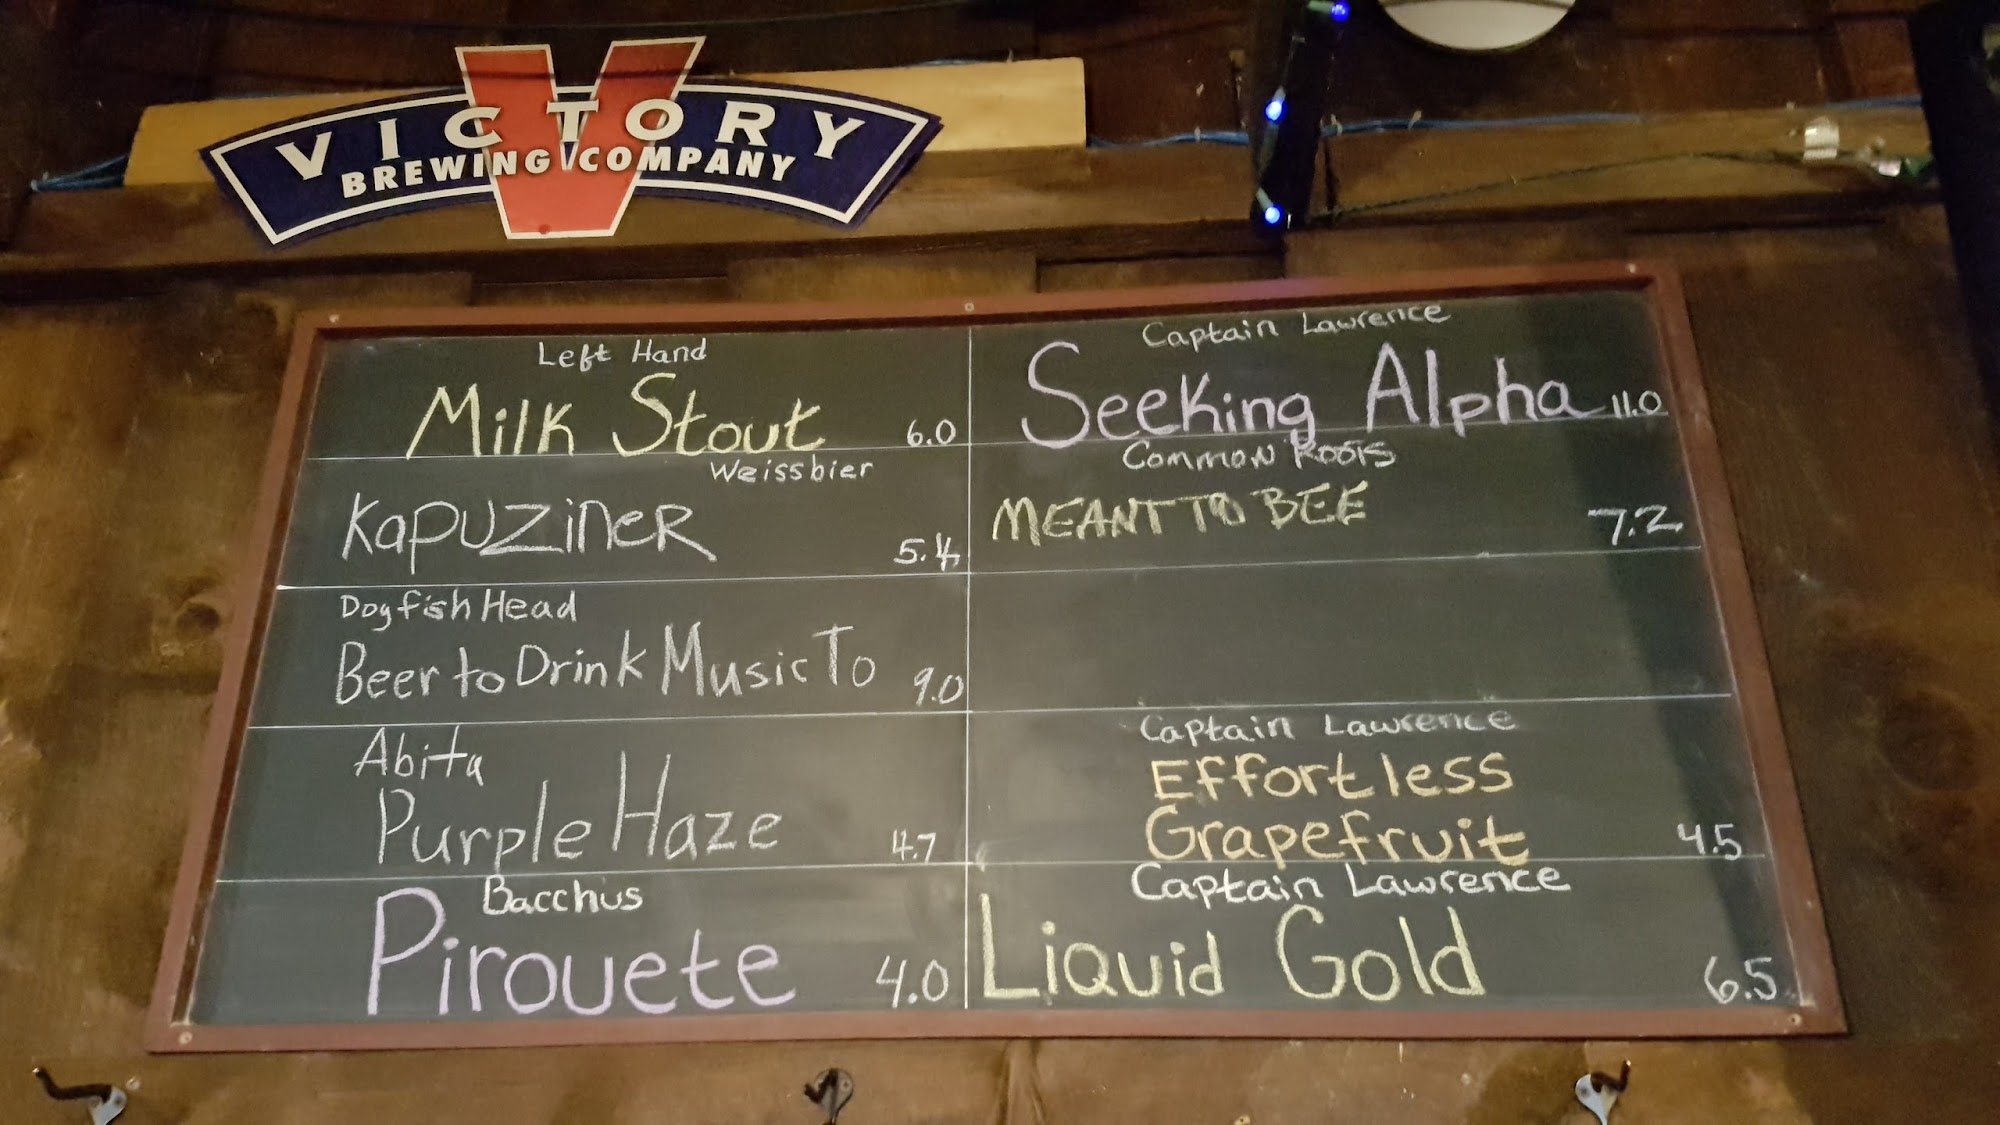 VICTORY
BREWING COMPANY
Left Hand
Milk Stout 6.0
Weissbier
Kapuziner 5.4
Dogfish Head
Beer to Drink Music To 9.0
Abita
Purple Haze 4.7
Bacchus
Pirouete 4.0
Captain Lawrence
Seeking Alpha 11.0
Common Roots
MEANT TO BEE 7.2
Captain Lawrence
Effortless
Grapefruit 4.5
Captain Lawrence
Liquid Gold 6.5